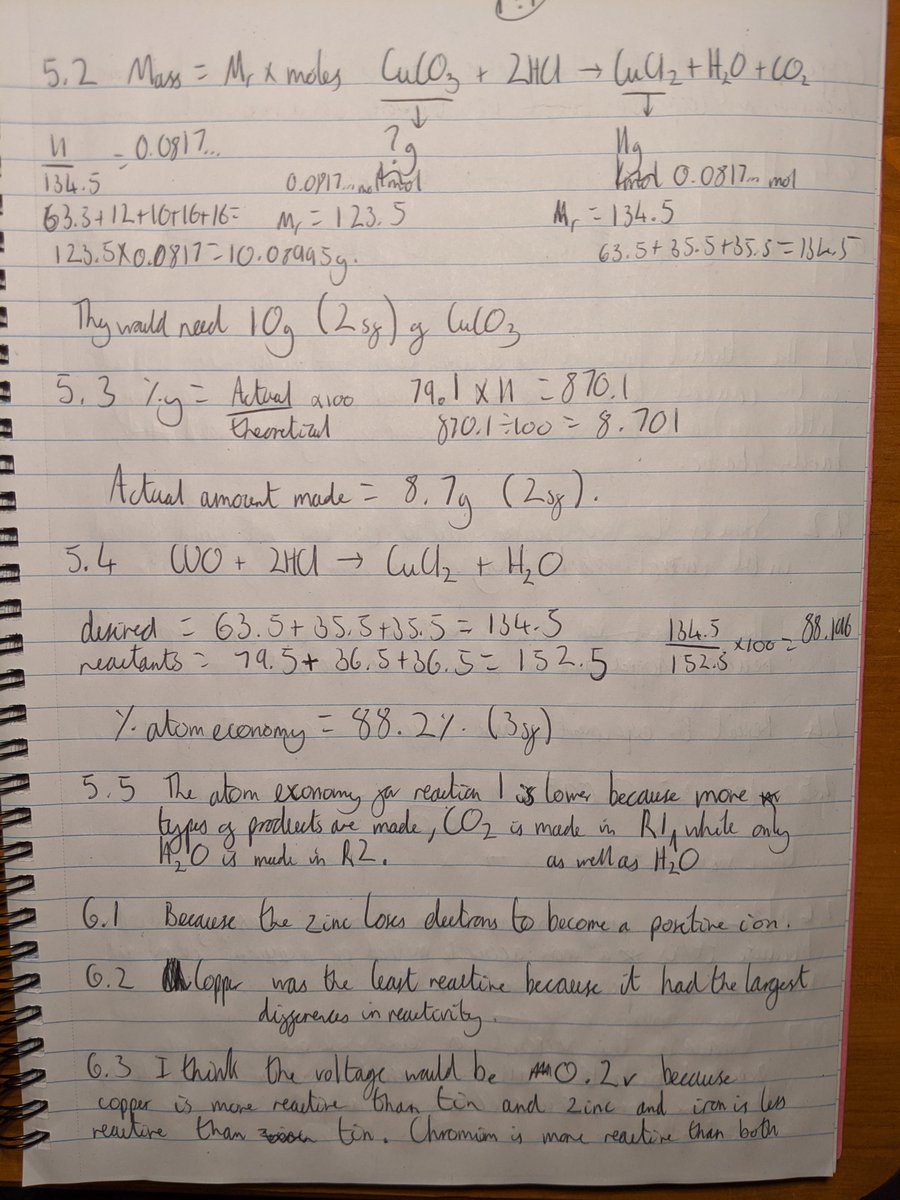 5.2 Mass = Mr x moles CuCO3 + 2HCl → CuCl2 + H2O + CO2
11/134.5 = 0.0817... ?g 11g
0.0817... mol 1mol 1mol 0.0817... mol
63.3+12+16+16+16= Mr = 123.5 Mr = 134.5
123.5x0.0817=10.08995g. 63.5+35.5+35.5=134.5
They would need 10g (2sf) of CuCO3
5.3 %y = Actual/theoretical x100 79.1 x 11 = 870.1
870.1÷100 = 8.701
Actual amount made = 8.7g (2sf).
5.4 CuO + 2HCl → CuCl2 + H2O
desired = 63.5+35.5+35.5 = 134.5 134.5/152.5 x100 = 88.196
reactants = 79.5+ 36.5+36.5 = 152.5
% atom economy = 88.2% (3sf)
5.5 The atom exonomy for reaction 1 is lower because more
types of products are made, CO2 is made in R1 as well as H2O, while only
H2O is made in R2.
6.1 Because the zinc loses electrons to become a positive ion.
6.2 Copper was the least reactive because it had the largest
differences in reactivity.
6.3 I think the voltage would be 0.2v because
copper is more reactive than tin and zinc and iron is less
reactive than tin. Chromium is more reactive than both